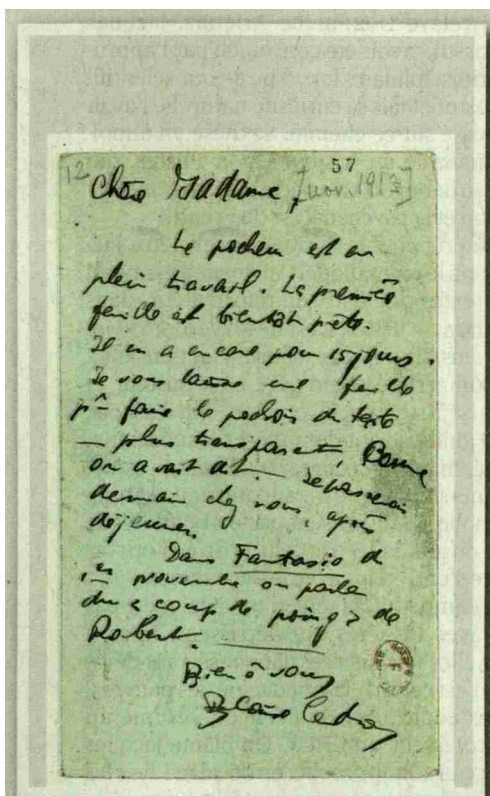 12 57
Chère Madame, [nov. 1913]
Le pochoir est en
plein travail. La première
feuille est bientôt prête.
Il en a encore pour 15 jours.
Je vous laisse une feuille
pr faire le pochoir du texte
— plus transparent, comme
on avait dit. Je passerai
demain chez vous, après
déjeuner.
Dans Fantasio de
1er novembre on parle
du « coup de poing » de
Robert.
Bien à vous
Blaise Cendrars